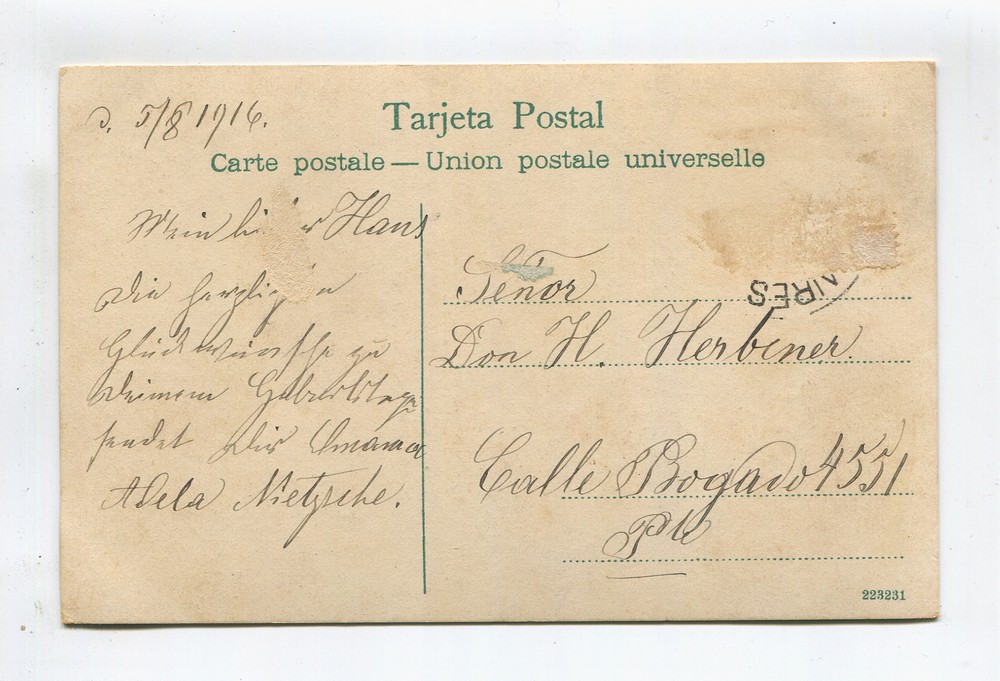 d. 5/8 1916.
Tarjeta Postal
Carte postale — Union postale universelle
Mein lieber Hans
Die herzlichen
Glückwünsche zu
Deinem Geburtstage
sendet Dir Omama
Adela Nietzsche.
NIRES
Señor
Don H. Herbener.
Calle Bogado 4551
Pte
223231